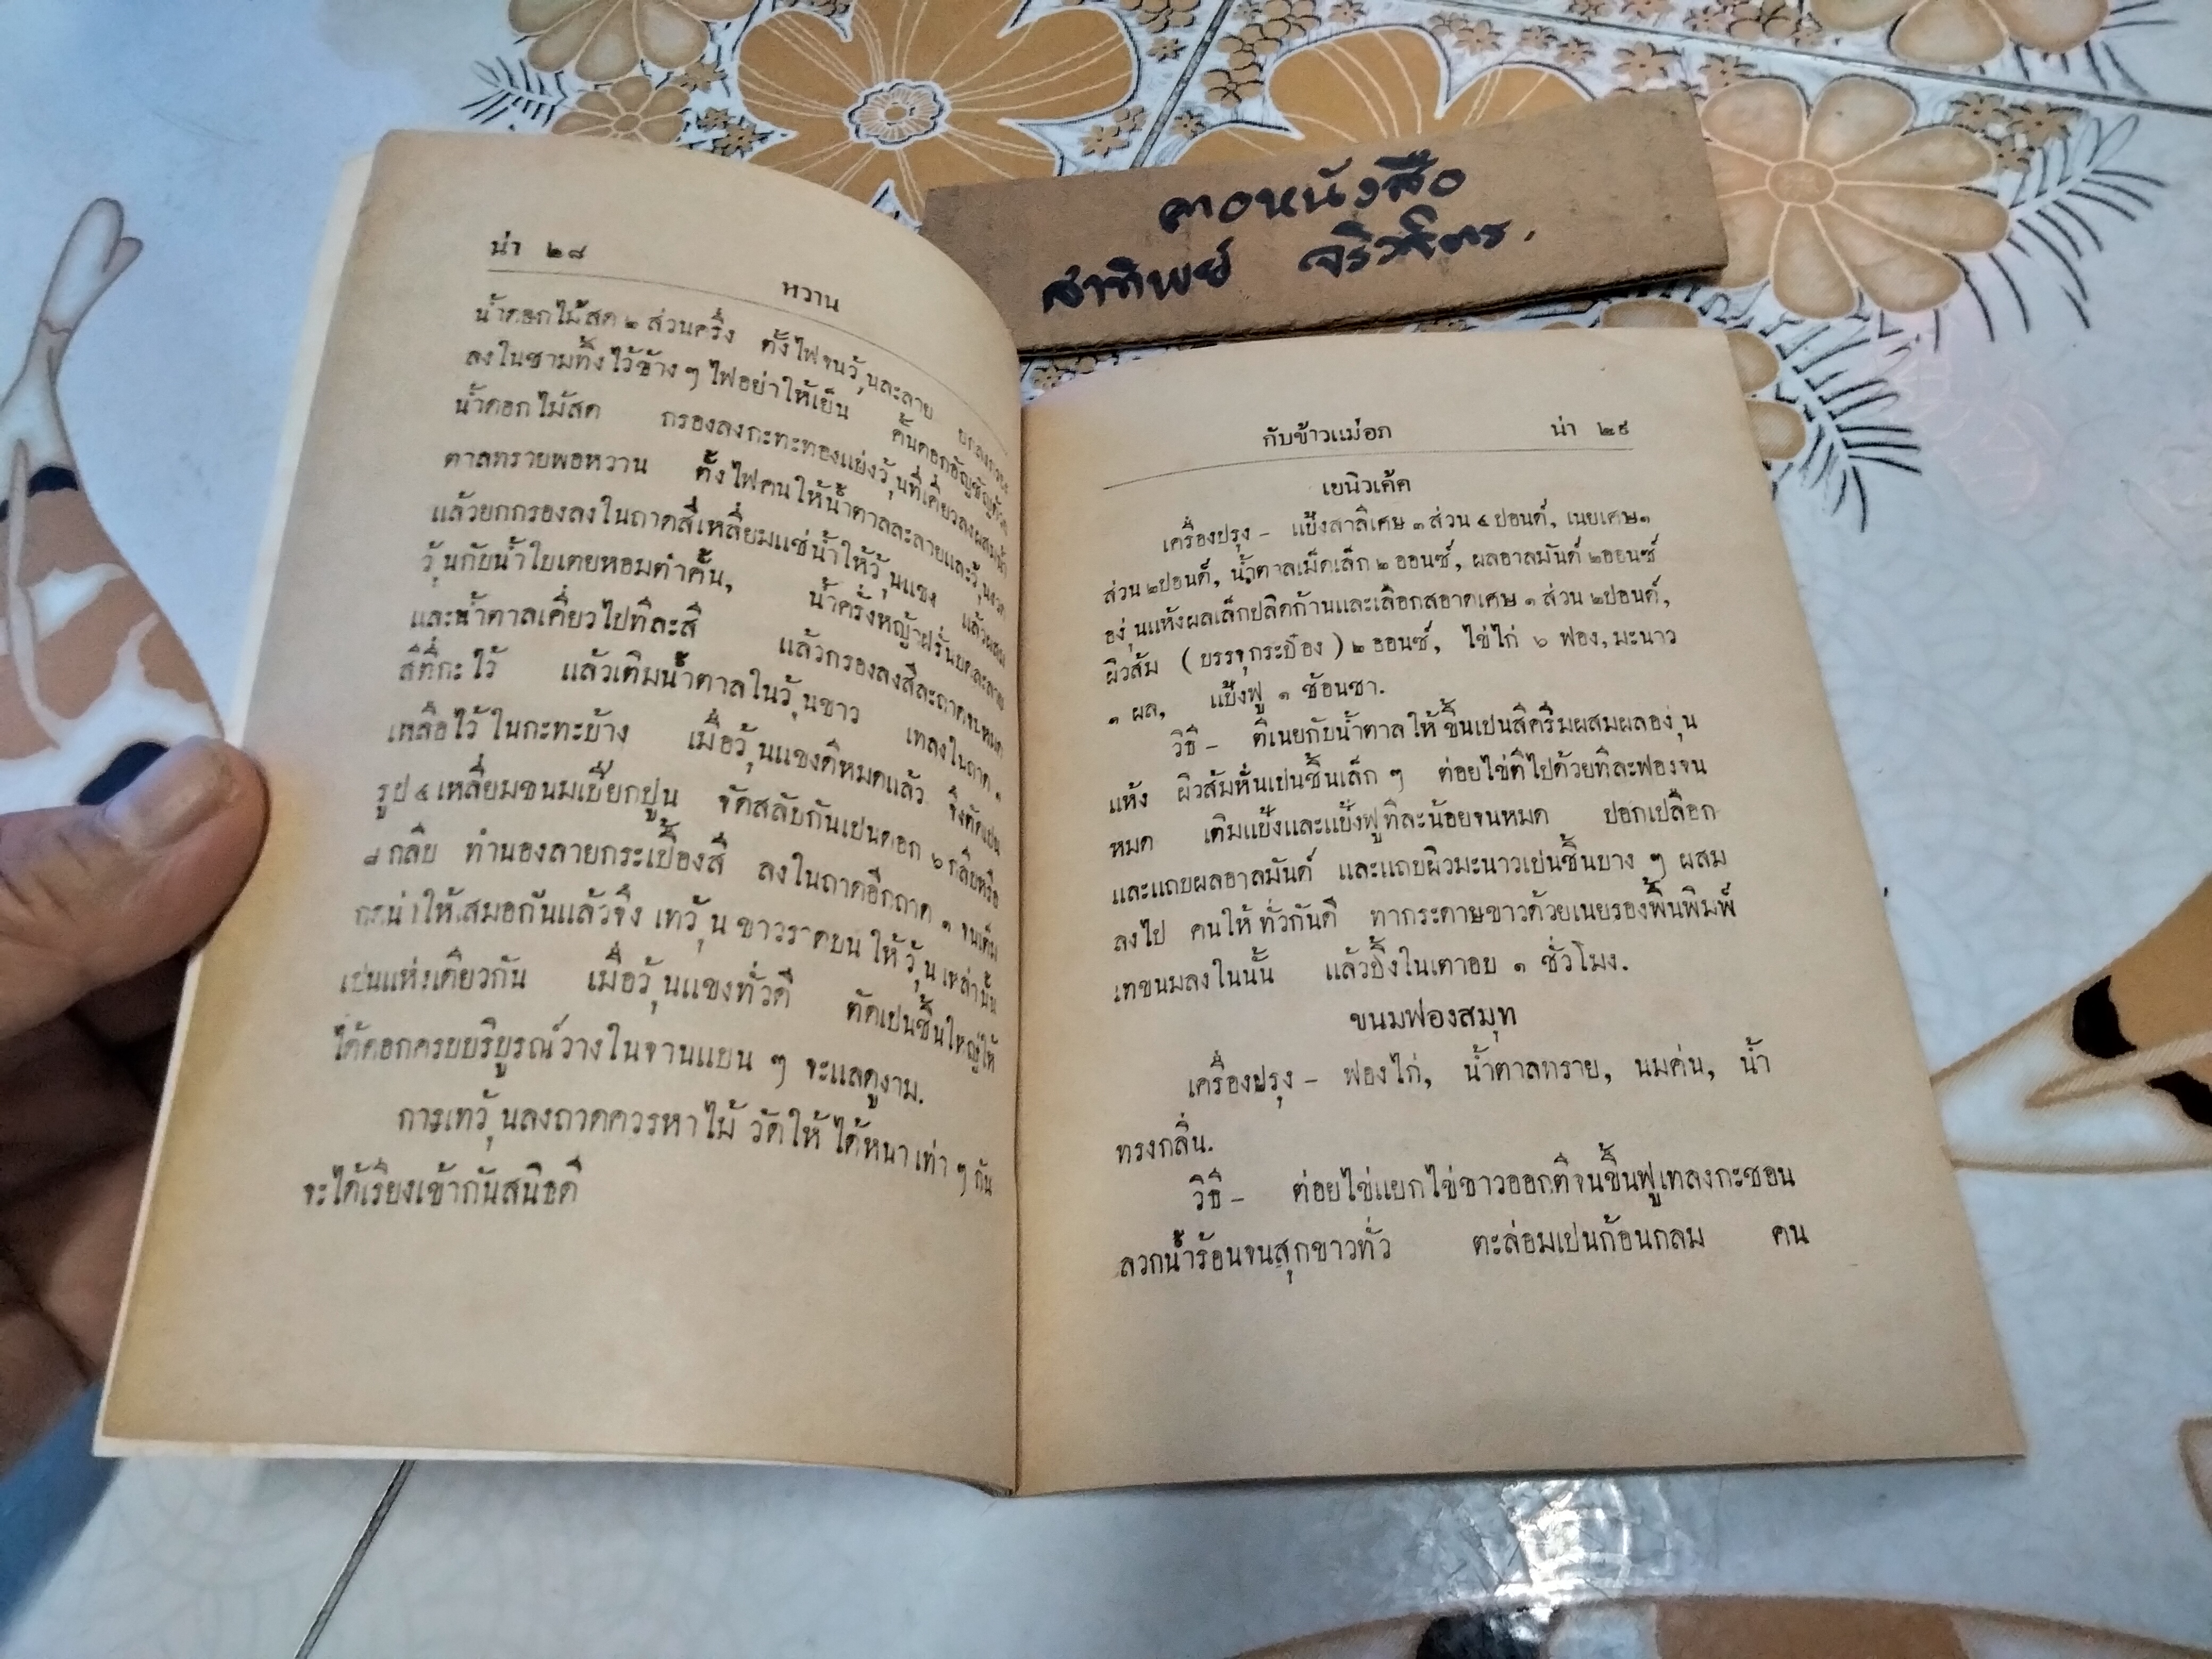 คอหนังสือ
สาทิพย์
น่า ๒๘
หวาน
น้ำดอกไม้สด ๒ ส่วนครึ่ง ตั้งไฟจนวุ้นละลาย
ลงในชามทิ้งไว้ข้าง ๆ ไฟอย่าให้เย็น คั้นดอกอัญชัญด้วย
น้ำดอกไม้สด กรองลงกะทะทองแย่งวุ้นที่เคี่ยวลงผสมน้ำ
ตาลทรายพอหวาน ตั้งไฟคนให้น้ำตาลละลายและวุ้นงวด
แล้วยกกรองลงในถาดสี่เหลี่ยมแช่น้ำให้วุ้นแขง แล้วผสม
วุ้นกับน้ำใบเตยหอมตำคั้น, น้ำครั่งหญ้าฝรั่นบดละลาย
และน้ำตาลเคี่ยวไปทีละสี แล้วกรองลงสีละถาดจนหมด
สีที่กะไว้ แล้วเติมน้ำตาลในวุ้นขาว เทลงในถาด ๑
เหลือไว้ในกะทะบ้าง เมื่อวุ้นแขงดีหมดแล้ว จึงตัดเปน
รูป ๔ เหลี่ยมขนมเปียกปูน จัดสลับกันเปนดอก ๖ กลีบหรือ
๘ กลีบ ทำนองลายกระเบื้องสี ลงในถาดอีกถาด ๑ จนเต็ม
กดน่าให้เสมอกันแล้วจึง เทวุ้นขาวราดบนให้วุ้นเหล่านั้น
เปนแห่งเดียวกัน เมื่อวุ้นแขงทั่วดี ตัดเปนชิ้นใหญ่ให้
ได้ดอกครบบริบูรณ์วางในจานแบน ๆ จะแลดูงาม.
การเทวุ้นลงถาดควรหาไม้ วัดให้ได้หนาเท่า ๆ กัน
จะได้เรียงเข้ากันสนิธดี
กับข้าวแม่อภ น่า ๒๙
เยนิวเค้ค
เครื่องปรุง – แป้งสาลีเศษ ๓ ส่วน ๔ ปอนด์, เนยเศษ ๑
ส่วน ๒ ปอนด์, น้ำตาลเม็ดเล็ก ๒ ออนซ์, ผลอาลมันด์ ๒ ออนซ์
องุ่นแห้งผลเล็กปลิดก้านและเลือกสอาดเศษ ๑ ส่วน ๒ ปอนด์,
ผิวส้ม (บรรจุกระป๋อง) ๒ ออนซ์, ไข่ไก่ ๖ ฟอง, มะนาว
๑ ผล, แป้งฟู ๑ ช้อนชา.
วิธี – ตีเนยกับน้ำตาลให้ขึ้นเปนสีครีมผสมผลองุ่น
แห้ง ผิวส้มหั่นเปนชิ้นเล็ก ๆ ต่อยไข่ตีไปด้วยทีละฟองจน
หมด เติมแป้งและแป้งฟูทีละน้อยจนหมด ปอกเปลือก
และแถบผลอาลมันด์ และแถบผิวมะนาวเปนชิ้นบาง ๆ ผสม
ลงไป คนให้ทั่วกันดี ทากระดาษขาวด้วยเนยรองพื้นพิมพ์
เทขนมลงในนั้น แล้วปิ้งในเตาอบ ๑ ชั่วโมง.
ขนมฟองสมุท
เครื่องปรุง – ฟองไก่, น้ำตาลทราย, นมค่น, น้ำ
ทรงกลิ่น.
วิธี – ต่อยไข่แยกไข่ขาวออกตีจนขึ้นฟูเทลงกะชอน
ลวกน้ำร้อนจนสุกขาวทั่ว ตะล่อมเปนก้อนกลม คน